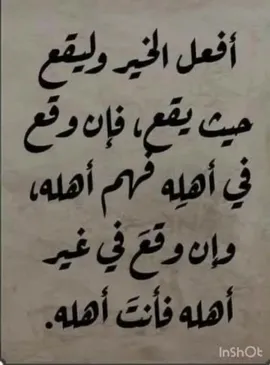 أفعل الخير وليقع
حيث يقع، فإن وقع
في أهلِه فهم أهله،
وإن وقعَ في غير
أهله فأنتَ أهله.
InShOt